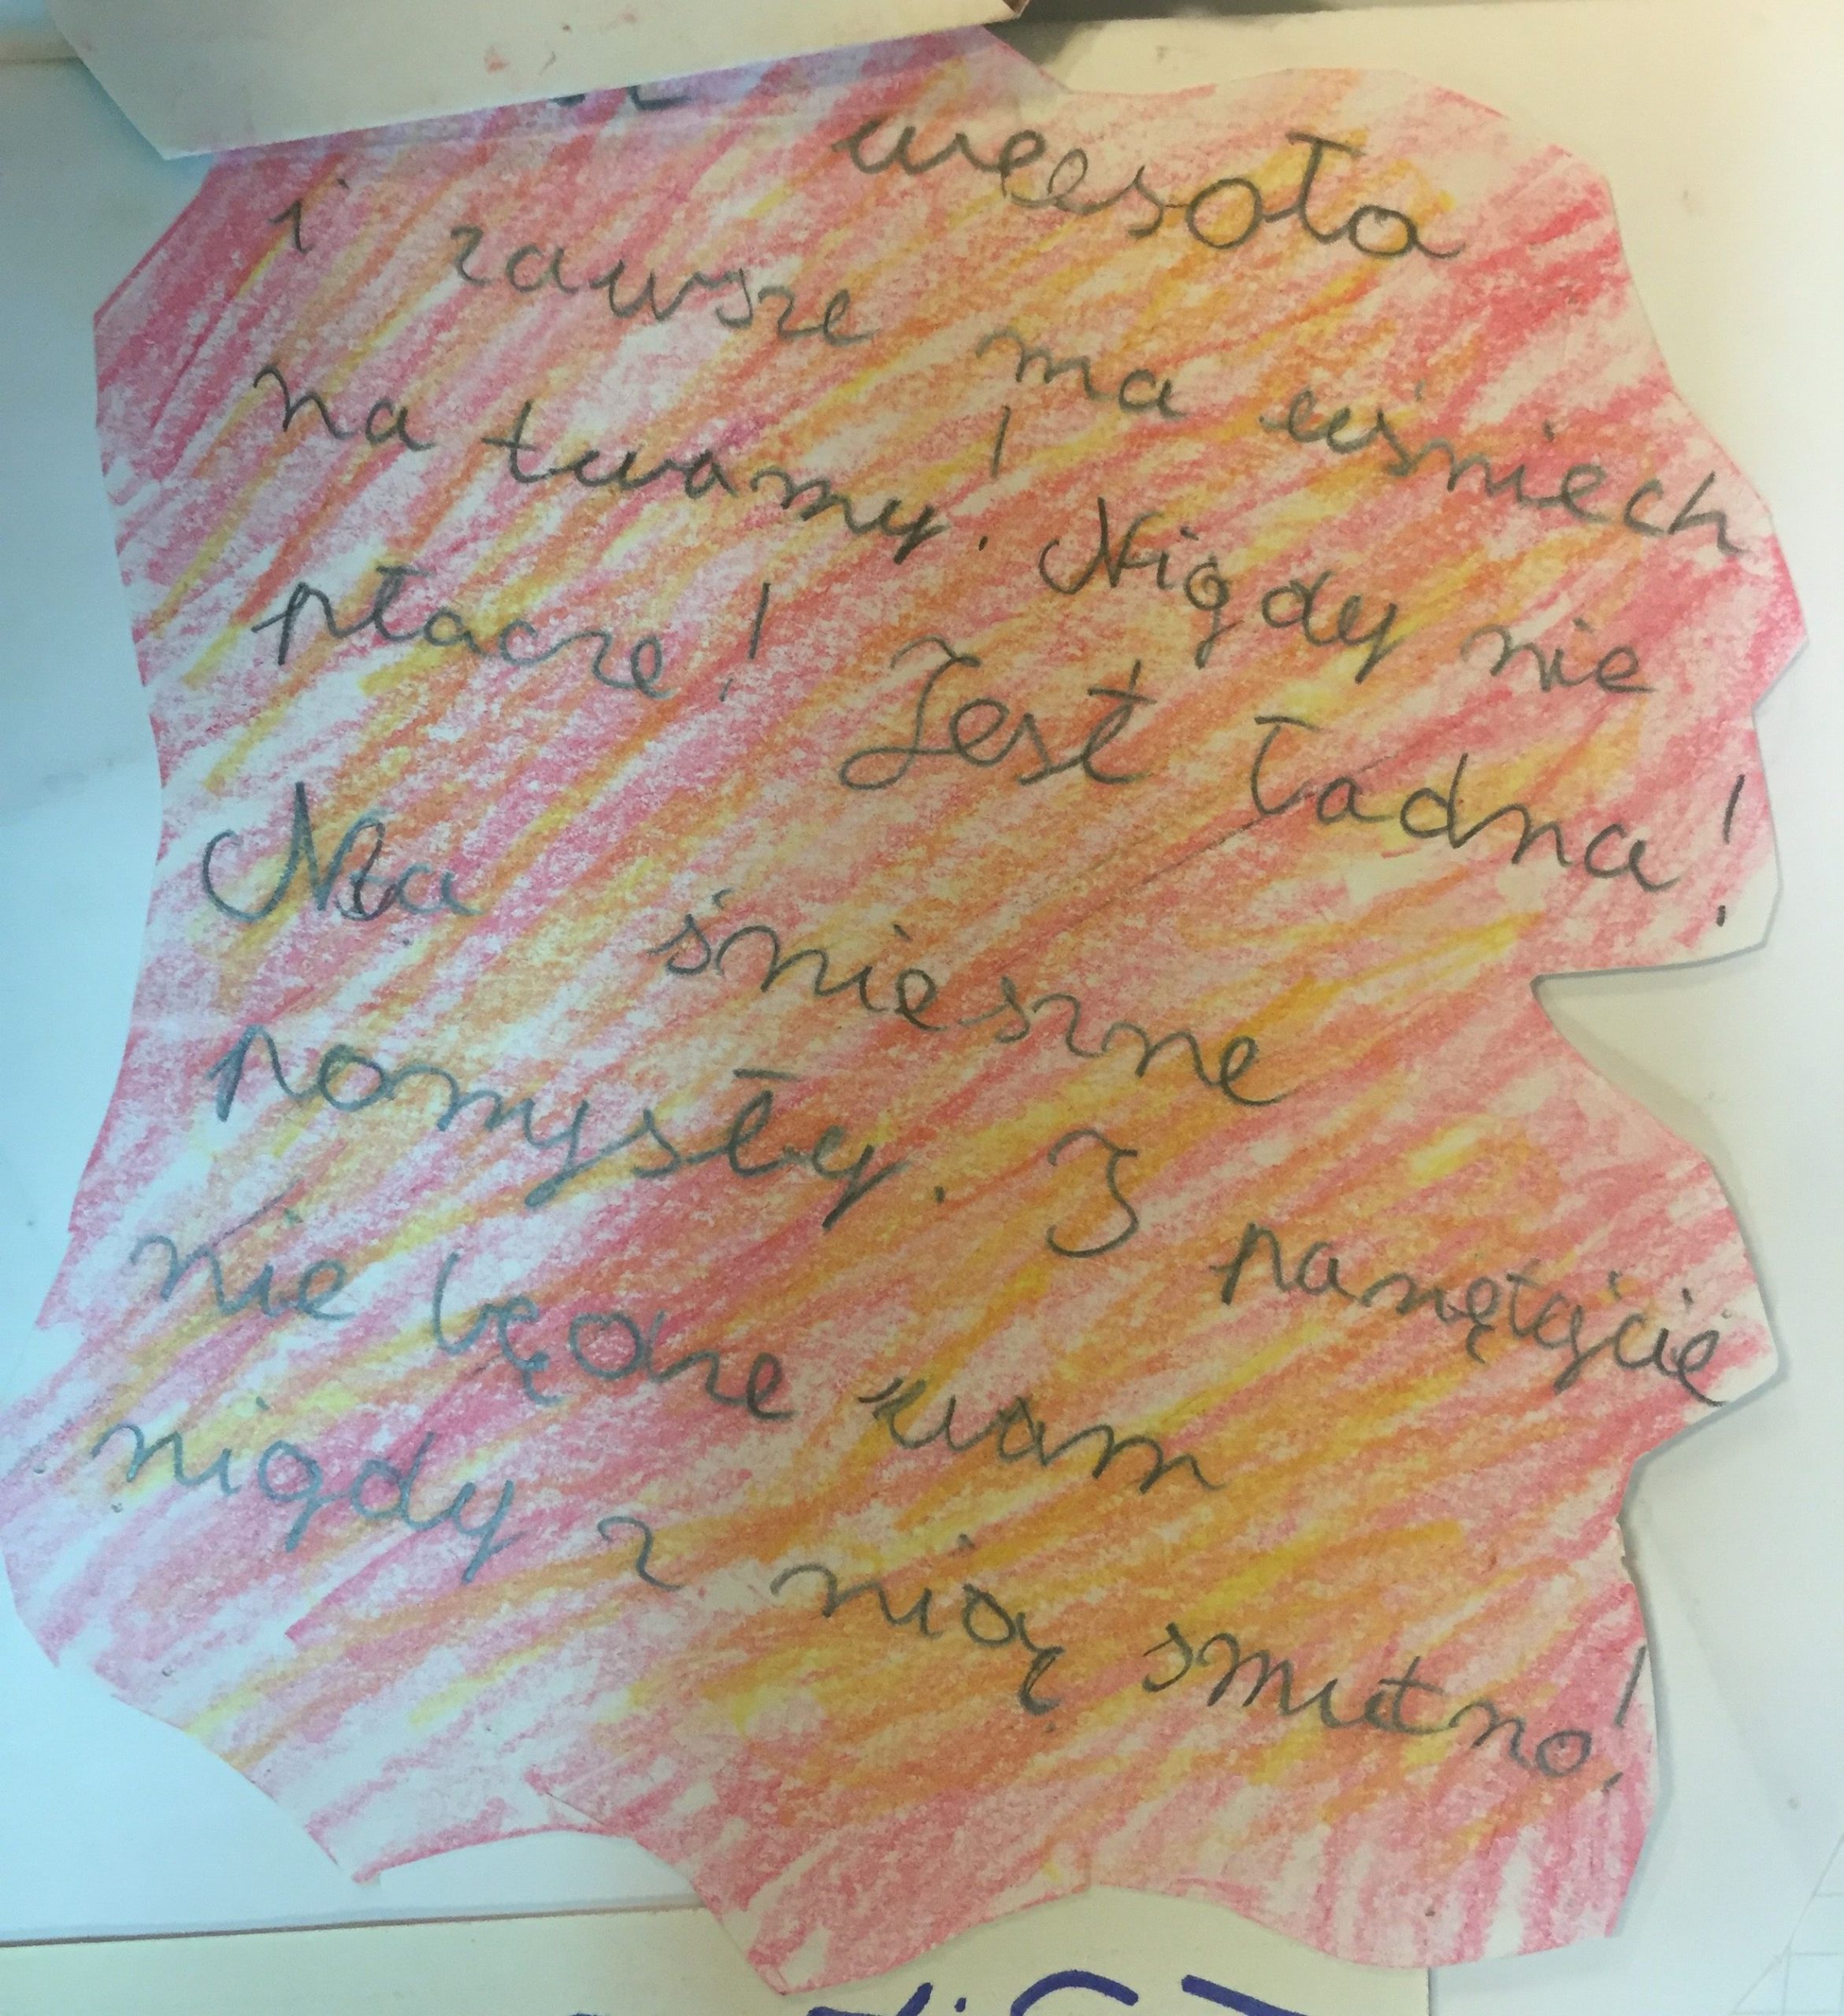 wesoła
i zawsze ma uśmiech
na twarzy! Nigdy nie
płacze! Jest ładna!
Ma śmieszne
pomysły. I pamętajcie
nie będze wam
nigdy z nią smutno!